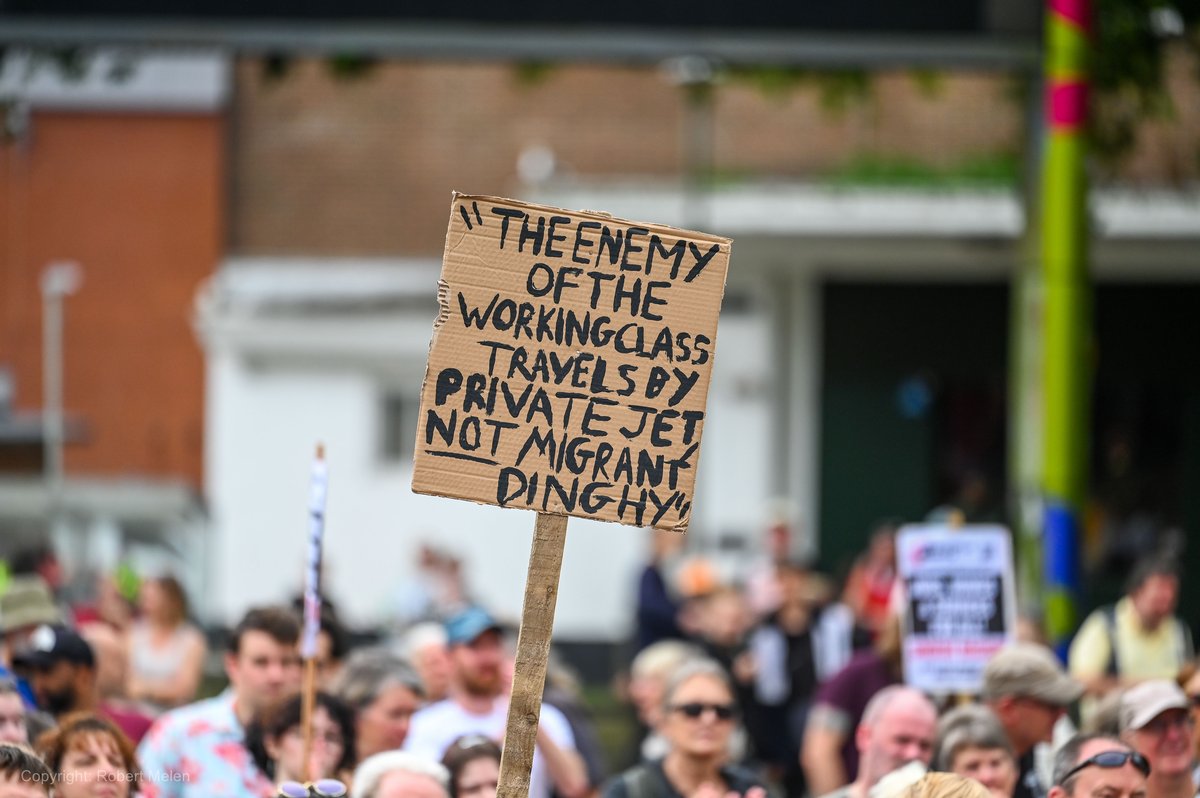 "THE ENEMY
OF THE
WORKING CLASS
TRAVELS BY
PRIVATE JET
NOT MIGRANT
DINGHY"
Copyright: Robert Melen